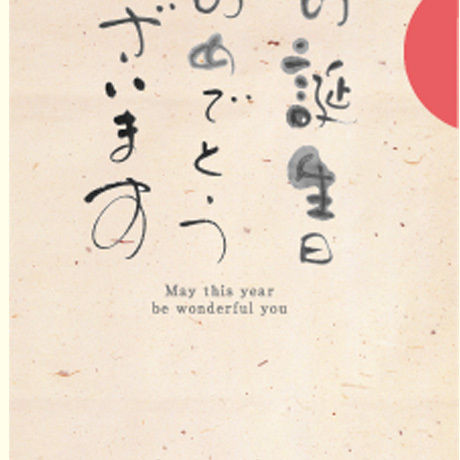 誕生日
めでとう
ざいます
May this year
be wonderful you